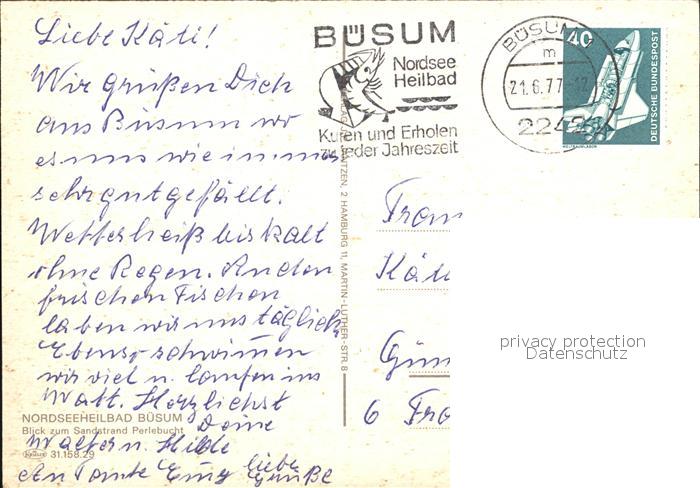 Liebe Käti!
Wir grüßen Dich
aus Büsum wo
es uns wie immer
sehr gut gefällt.
Wetter heiß bis kalt
ohne Regen. An den
frischen Fischen
laben wir uns täglich
Ebenso schwimmen
wir viel u. laufen ins
Watt. Herzlichst
Deine
Walter u. Hilde
An Tante Emy liebe
Grüße
NORDSEEHEILBAD BÜSUM
Blick zum Sandstrand Perlebucht
Krüger 31.158.29
2 HAMBURG 11, MARTIN-LUTHER-STR. 8
BÜSUM
Nordsee
Heilbad
Kuren und Erholen
zu jeder Jahreszeit
BÜSUM
m
21.6.77-12
2242
40
DEUTSCHE BUNDESPOST
WELTRAUMLABOR
Frau
Käti
6 Fra
privacy protection
Datenschutz